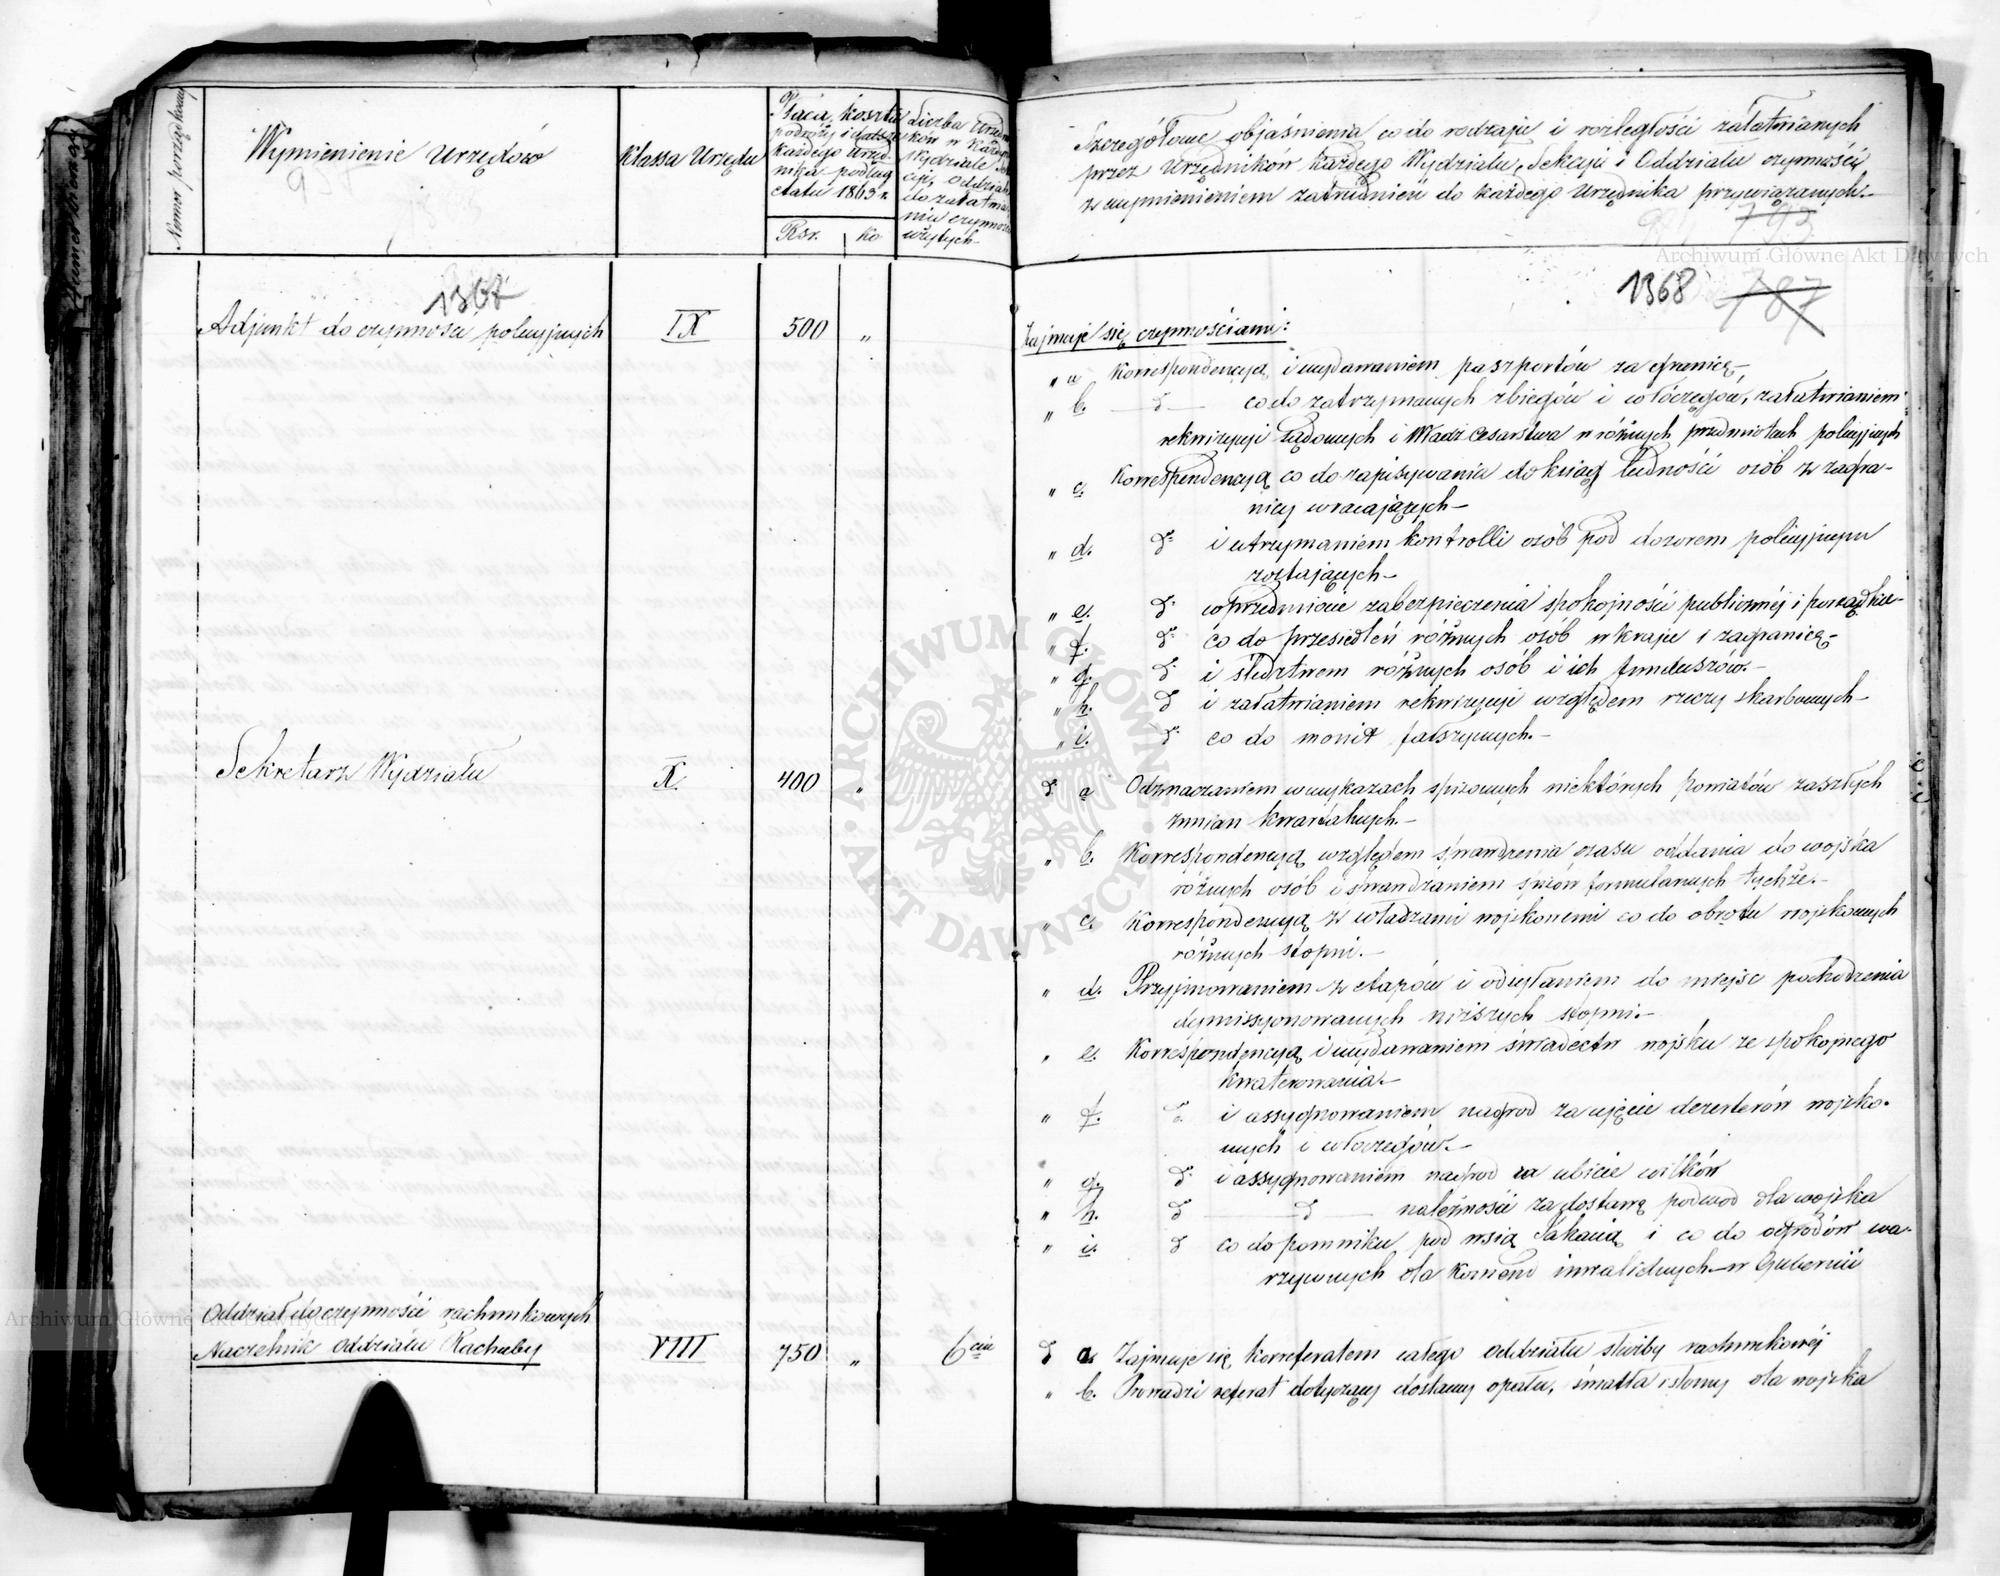 Numer porządkowy
Wymienienie Urzędów
Klassa Urzędu
Płaca, koszta
podróży i datsze
każdego Urzęd-
nika podług
etatu 1863 r.
Rsr. ko
Liczba Urzęd
ków w każdym
Wydziale
cji, Oddziale
do załatwia
nia czynności
użytych
Szczegółowe objaśnienia co do rodzaju i rozległości załatwianych
przez Urzędników każdego Wydziału, Sekcji i Oddziału czynności
z wymienieniem zatrudnień do każdego Urzędnika przywiązanych.
793
1368
1368 787
Adjunkt do czynności policyjnych IX 500 "
Zajmuje się czynnościami:
" a Korrespondencyą i wydawaniem paszportów za granicę,
" b. d° co do zatrzymanych zbiegów i włóczęgów, załatwianiem
rekwizycyi Sądowych i Władz Cesarstwa w różnych przedmiotach policyjnych
" c. Korrespondencyą co do zapisywania do ksiąg ludności osób z zagra-
nicy wracających
" d. d° i utrzymaniem kontrolli osób pod dozorem policyjnym
zostających
" e. d° w przedmiocie zabezpieczenia spokojności publicznéj i porządku
" f. d° co do przesiedleń różnych osób w kraju i zagranicę
" g. d° i śledztwem różnych osób i ich funduszów.
" h. d° i załatwianiem rekwizycyi względem rzeczy skarbowych
" i. d° co do monet fałszywych.
Sekretarz Wydziału X. 400 "
d° a Odznaczaniem w wykazach spisowych niektórych powiatów zaszłych
zmian kwartalnych.
" b. Korrespondencyą względem sprawdzenia czasu oddania do wojska
różnych osób i sprawdzaniem spisów formularnych tychże.
" c. Korrespondencyą z władzami wojskowemi co do obrotu wojskowych
różnych stopni.
" d. Przyjmowaniem z etapów i odsyłaniem do miejsc pochodzenia
dymissyonowanych niższych stopni.
" e. Korrespondencyą i wydawaniem świadectw wojsku ze spokojnego
kwaterowania.
" f. d° i assygnowaniem nagrod za ujęcie dezerterów wojsko-
wych i włóczęgów.
" g. d° i assygnowaniem nagrod za ubicie wilków
" h. d° d° należności za dostawę podwod dla wojska
" i. d° co do pomniku pod wsią i co do ogrodów wa-
rzywnych dla Komend inwalidnych w Gubernii
Oddział do czynności rachunkowych
Naczelnik Oddziału Rachuby VIII 750 " 6ciu
d° a. Zajmuje się korreferatem całego oddziału służby rachunkowéj
" b. Prowadzi referat dotyczący dostawy opału, światła i słomy dla wojska
ARCHIWUM GŁÓWNE AKT DAWNYCH
Archiwum Główne Akt Dawnych
Archiwum Główne Akt Dawnych